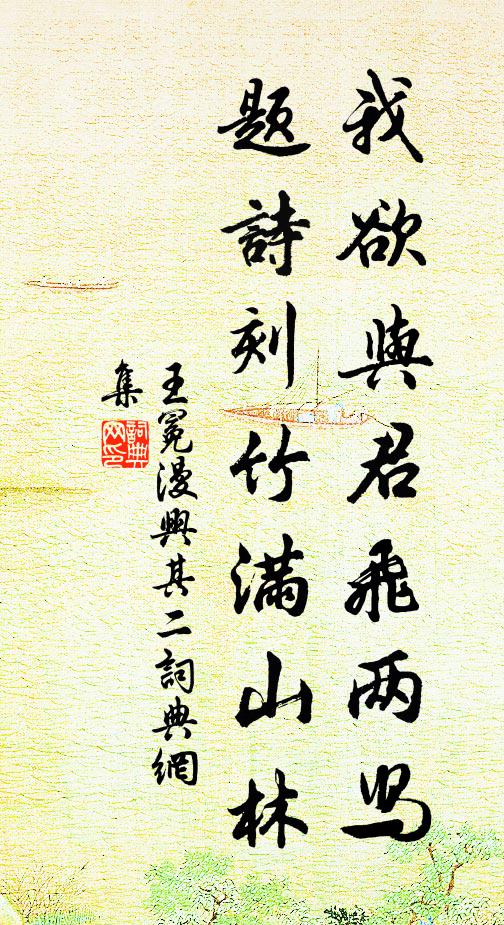 我欲與君飛两舄
题詩刻竹满山林
王冕漫興其二詞典網
集
詞典网印